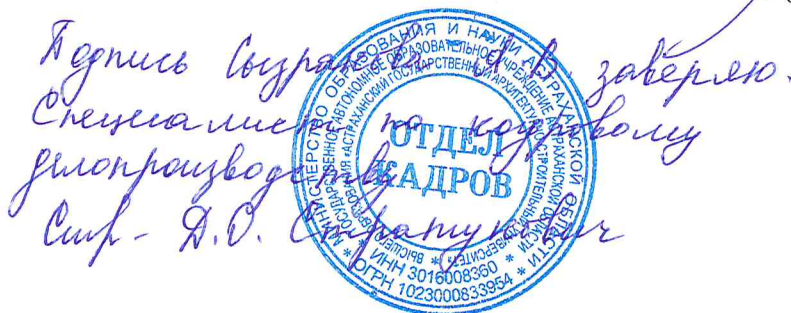 Подпись Сызранова В. В. заверяю.
Специалист по кадровому
делопроизводству
Д.О. Стратунович
МИНИСТЕРСТВО ОБРАЗОВАНИЯ И НАУКИ АСТРАХАНСКОЙ ОБЛАСТИ
ГОСУДАРСТВЕННОЕ АВТОНОМНОЕ ОБРАЗОВАТЕЛЬНОЕ УЧРЕЖДЕНИЕ АСТРАХАНСКОЙ ОБЛАСТИ
ВЫСШЕГО ОБРАЗОВАНИЯ «АСТРАХАНСКИЙ ГОСУДАРСТВЕННЫЙ АРХИТЕКТУРНО-СТРОИТЕЛЬНЫЙ УНИВЕРСИТЕТ»
ОТДЕЛ
КАДРОВ
* ИНН 3016008360 *
* ОГРН 1023000833954 *